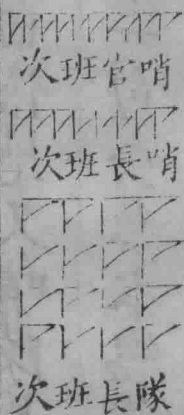 次班官哨
次班長哨
次班長隊